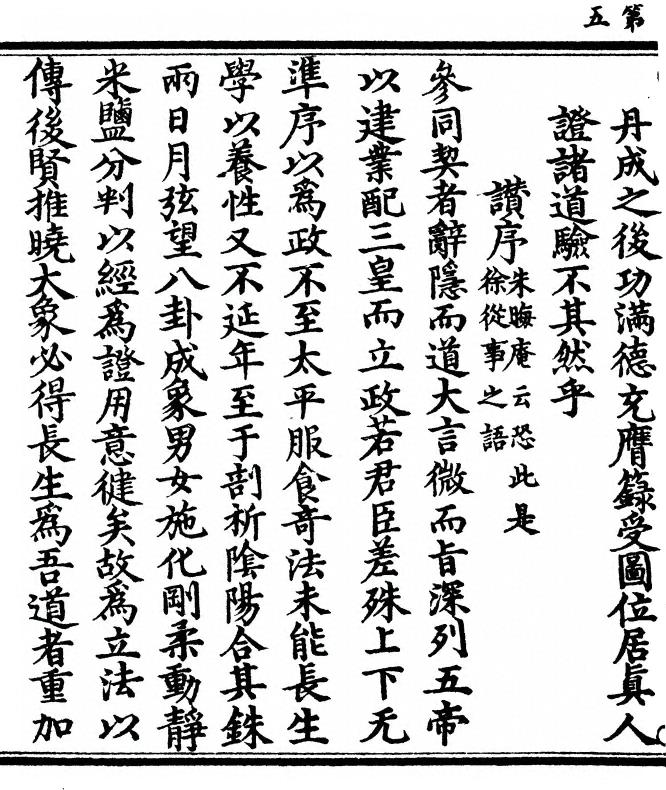 第五
丹成之後功滿德充膺籙受圖位居眞人
證諸道驗不其然乎
讃序朱晦庵云恐此是徐從事之語
參同契者辭隱而道大言微而旨深列五帝
以建業配三皇而立政若君臣差殊上下无
準序以爲政不至太平服食奇法未能長生
學以養性又不延年至于剖析陰陽合其銖
兩日月弦望八卦成象男女施化剛柔動靜
米鹽分判以經爲證用意健矣故爲立法以
傳後賢推曉大象必得長生爲吾道者重加